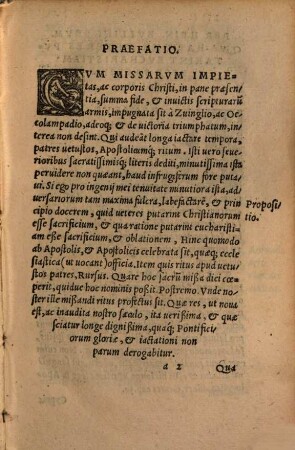 PRAEFATIO.
CVM MISSARVM IMPIE-
tas, ac corporis Christi, in pane præsen
tia, summa fide, & inuictis scripturarũ
armis, impugnata sit à Zuinglio, ac Oe
colampadio, adeoq; & de uictoria triumphatum, in-
terea non desint. Qui audeāt longa iactare tempora,
patres uetustos, Apostoliumq́; ritum. Isti uero seue-
rioribus sacratissimisq́; literis dediti, minutissima ista
peruidere non queant, haud infrugiferum fore puta
ui. Si ego pro ingenij mei tenuitate minutiora ista, ad-
uersariorum tam maxima fulcra, labefactarē, & prin
cipio docerem, quid ueteres putarint Christianorum
esse sacrificium, & qua ratione putarint eucharisti-
am esse sacrificium, & oblationem, Hinc quomodo
ab Apostolis, & Apostolicis celebrata sit, quæq; eccle
siastica (ut uocant) officia. Item quis ritus apud uetu-
stos patres, Rursus. Quare hoc sacrũ missa dici cœ-
perit, quidue hoc nominis possit. Postremo. Vnde no-
ster ille missandi ritus profectus sit. Quæ res, ut noua
est, ac inaudita nostro sæculo, ita uerissima, & quæ
sciatur longe dignissima, quaq́; Pontifici-
orum gloriæ, & iactationi non
parum derogabitur.
Proposi-
tio.
a 2 Qua